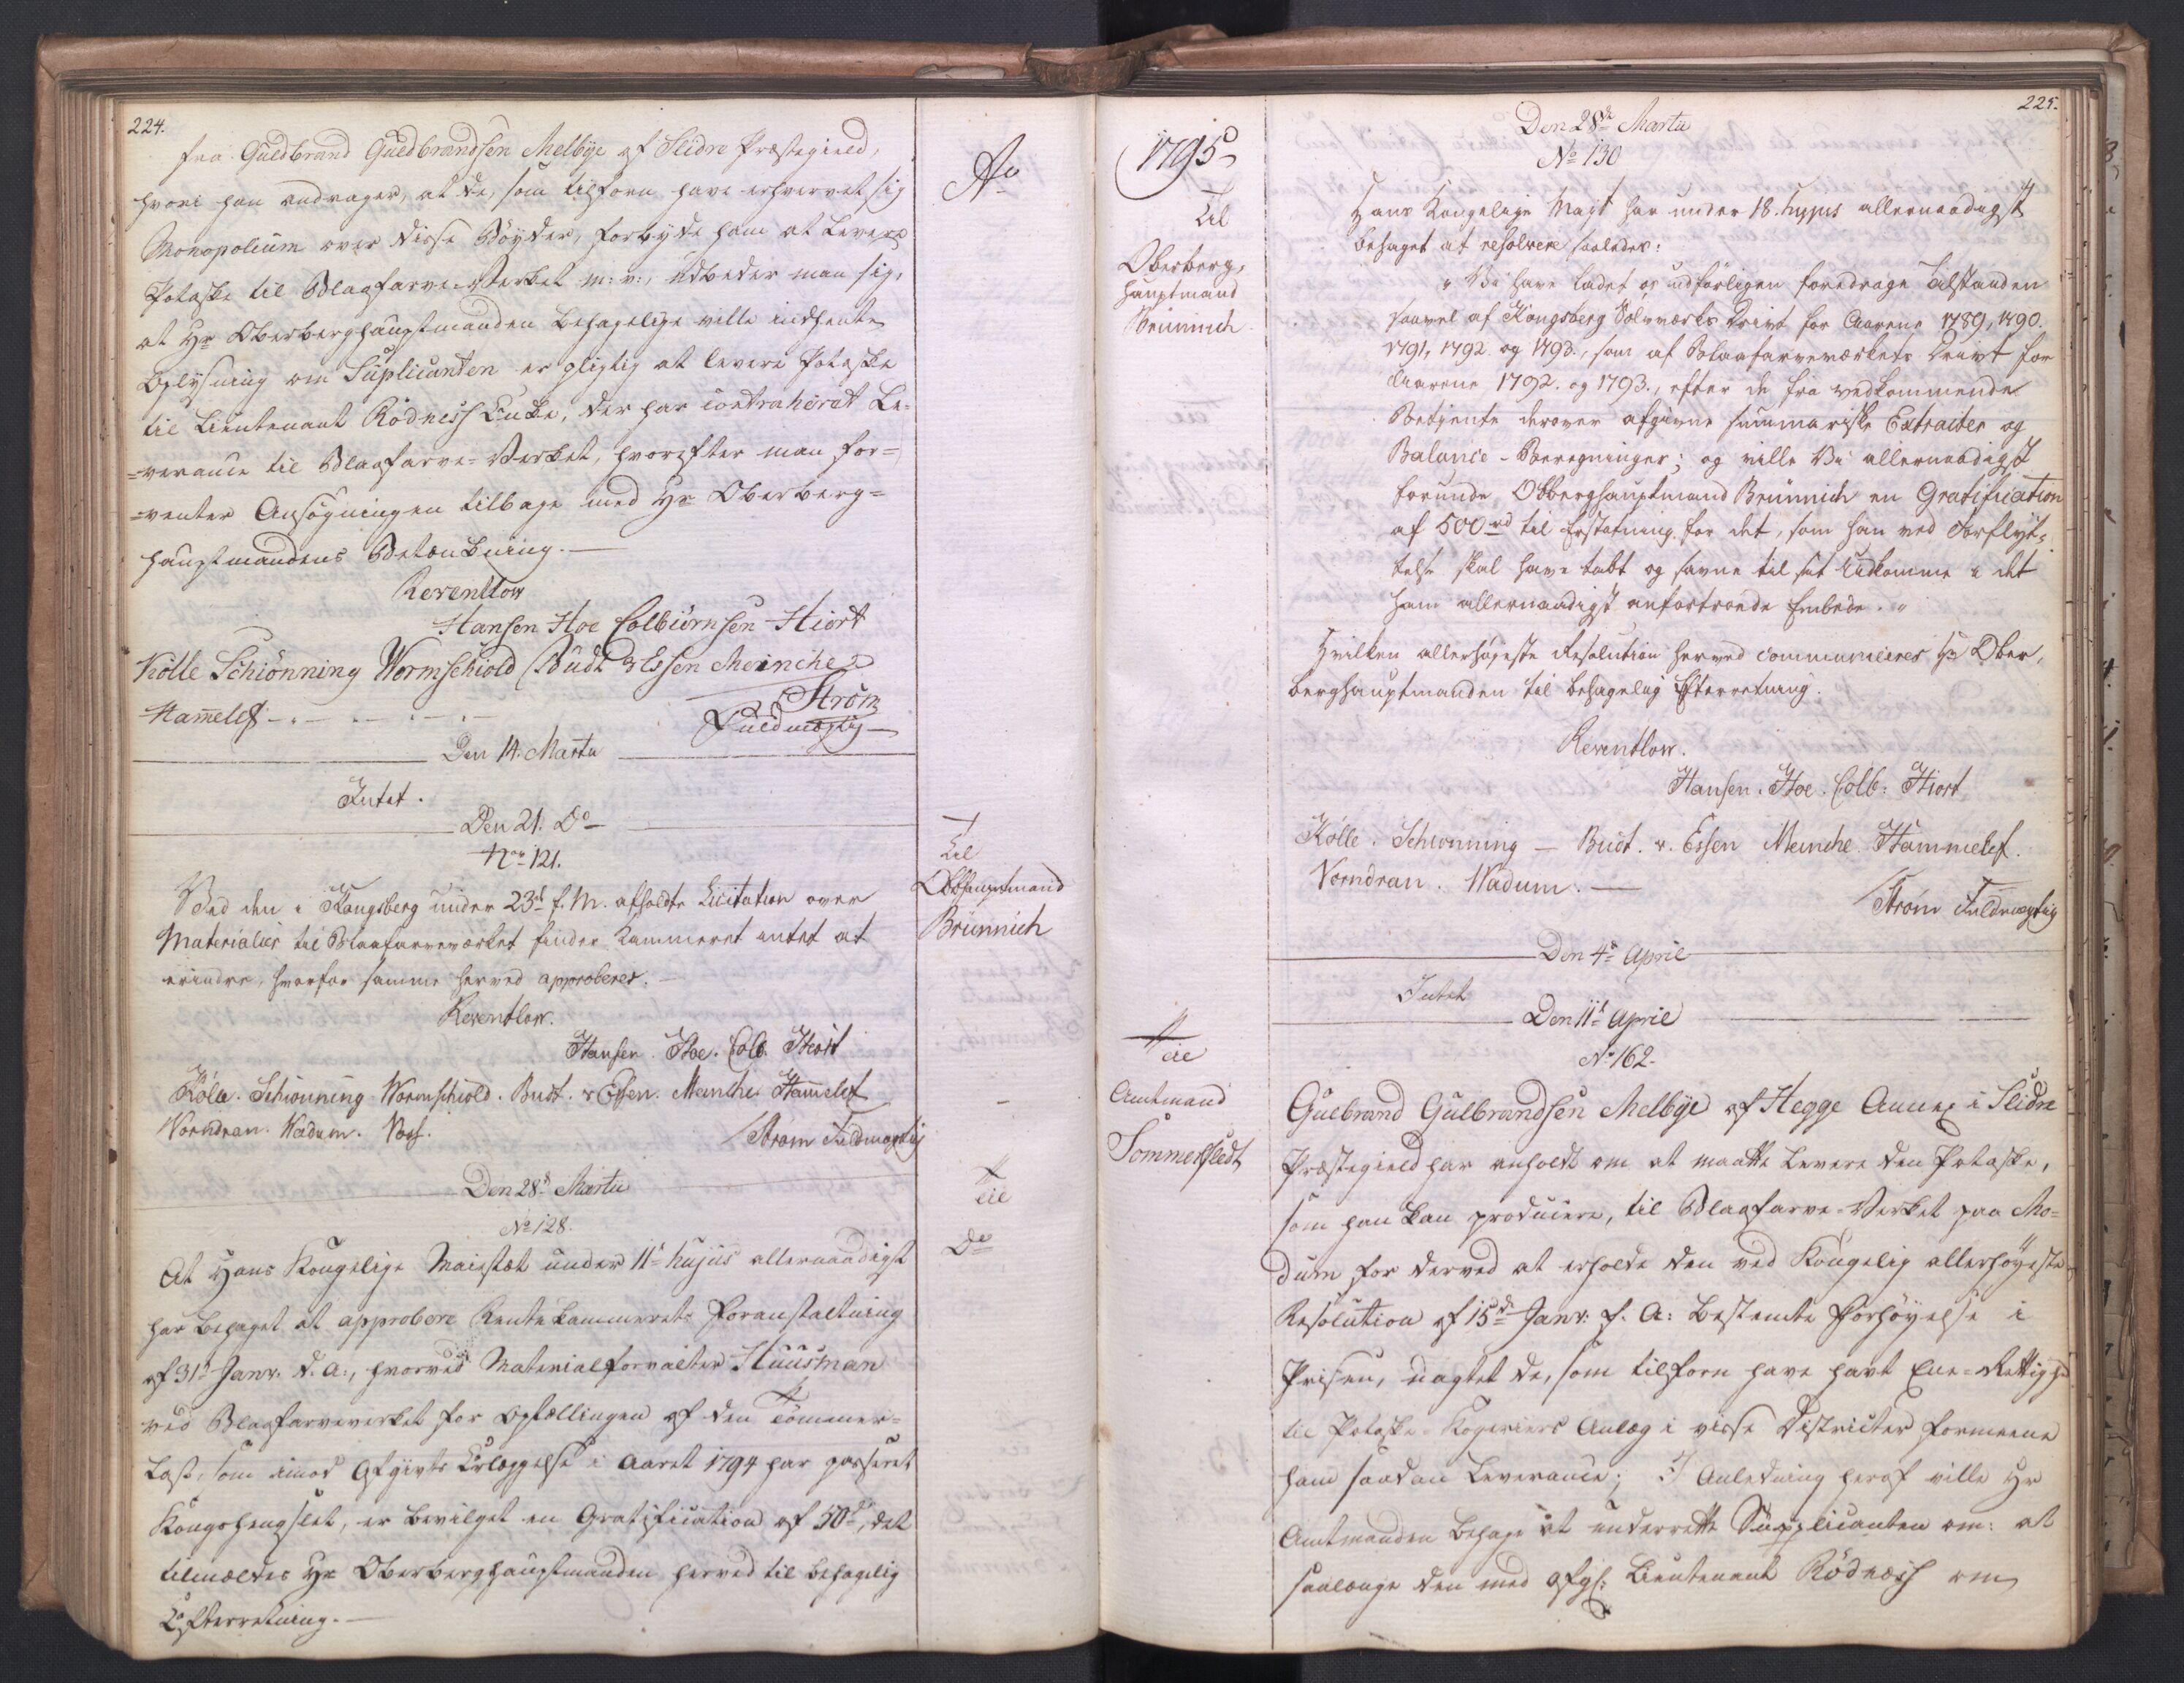 224.
fra Guldbrand Guldbrandsen Melbÿe af Slidre Præstegield,
hvori han andrager, at de, som tilforn have erhvervet sig
Monopolium over disse Bÿgder, forbÿde ham at levere
Potaske til Blaafarve-Værket m: v:, udbeder man sig,
at Hr Oberberghauptmanden behagelige ville indhente
Oplÿsning om Suplicanten er pligtig at levere Potaske
til Lieutenant Rødness Enke, der har contraheret Le-
=verance til Blaafarve-Verket, hvorefter man for=
=venter Ansøgningen tilbage med Hr Oberberg=
hauptmandens Betænkning.—
Reventlow
Hansen Hoe Colbiørnsen Hiort
Kölle Schiönning Wormschiold Budt v Essen Meinche
Hamelef
Strøm
Fuldmægtig
Den 14. Martii
Intet.
Den 21. Do
No 121.
Ved den i Kongsberg under 23d f. M. afholdte Licitation over
Materialier til Blaafarveværket finder Kammeret intet at
erindre, hvorfor samme herved approberes.—
Reventlow.
Hansen. Hoe. Colb. Hiort
Kölle. Schiönning. Wormschiold. Budt. v Essen. Meinche Hamelef
Vorndran. Wadum. Voss.
Strøm Fuldmægtig
Den 28d Martii
No 128.
At Hans Kongelige Maiestæt under 11t hujus allernaadigst
har behaget at approbere Rentekammerets Foranstaltning
af 31t Janv: d. A:, hvorved Materialforvalter Huusman
ved Blaafarveverket for Optællingen af den Tømmer-
Last, som imod Afgivts Erlæggelse i Aaret 1794 har passeret
Kongshengslet, er bevilget en Gratification af 50rd, det
tilmeldes Hr Oberberghauptmanden herved til behagelig
Efterretning.—
Ao
Til
Obbhauptmand
Brünnich
Til
Do
1795
Til
Oberberg-
hauptmand
Brünnich.
Til
Amtmand
Sommerfeldt
225.
Den 28de Martii
No 130
Hans Kongelige Mayt har under 18. hujus allernaadigst
behaget at resolvere saaledes:
"Vi have ladet os udførligen foredrage Tilstanden
saavel af Kongsberg Sølvværks Drivt for Aarene 1789, 1790.
1791, 1792 og 1793., som af Blaafarveværkets Drivt for
Aarene 1792. og 1793., efter de fra vedkommende
Betjente derover afgivne summariske Extracter og
Balance-Beregninger; og ville Vi allernaadigst
forunde Obberghauptmand Brünnich en Gratification
af 500rd til Erstatning for det, som han ved Forflÿt-
telse skal have tabt og savne til sit Udkomme i det
ham allernaadigst anfortroede Embede."
Hvilken allerhøyeste Resolution herved communiceres Hr Ober-
berghauptmanden til behagelig Efterretning.
Reventlow.
Hansen. Hoe. Colb: Hiort
Kölle. Schiönning — Budt. v. Essen Meinche. Hammelef.
Vorndran. Wadum.—
Strøm Fuldmægtig
Den 4de April
Intet
Den 11t April
No 162.
Gulbrand Gulbrandsen Melbÿe af Hegge Annex i Slidre
Præstegield har anholdt om at maatte levere den Potaske,
som han kan producere, til Blaafarve-Verket paa Mo-
dum for derved at erholde den ved Kongelig allerhøyeste
Resolution af 15de Janv: f. A: bestemte Forhøyelse i
Prisen, uagtet de, som tilforn have havt Ene-Rettighed
til Potaske-Kogeriers Anlæg i visse Districter formeene
ham saadan Leverance; I Anledning heraf ville Hr
Amtmanden behage at underrette Supplicanten om: at
saalænge den med afgl: Lieutenant Rödness om